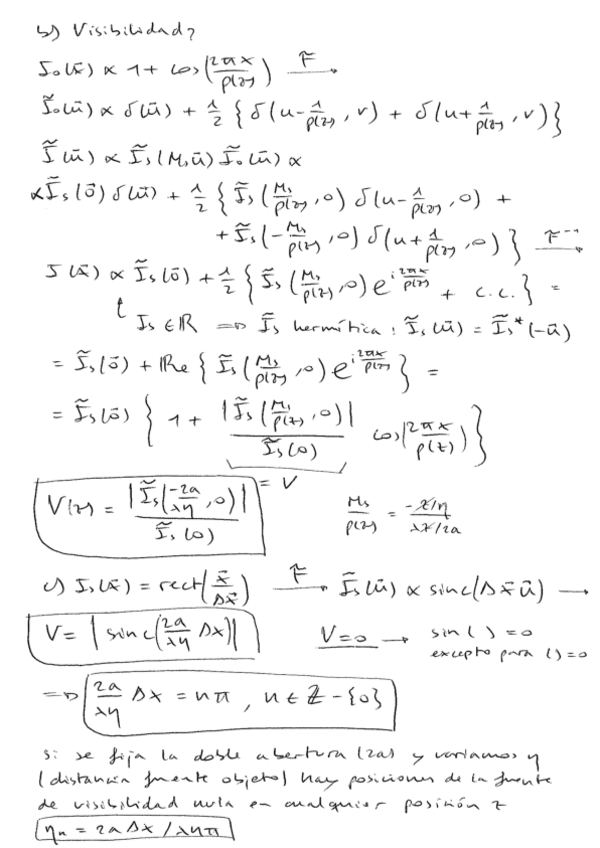 b) Visibilidad?
I₀(x̄) ∝ 1 + cos(2πx/p(z)) —F→
Ĩ₀(ū) ∝ δ(ū) + 1/2 { δ(u - 1/p(z), v) + δ(u + 1/p(z), v) }
Ĩ(ū) ∝ Ĩs(Ms ū) Ĩ₀(ū) ∝
∝ Ĩs(0̄) δ(ū) + 1/2 { Ĩs(Ms/p(z), 0) δ(u - 1/p(z), 0) +
+ Ĩs(-Ms/p(z), 0) δ(u + 1/p(z), 0) } —F⁻¹→
I(x̄) ∝ Ĩs(0̄) + 1/2 { Ĩs(Ms/p(z), 0) e^{i 2πx/p(z)} + c.c. } =
Is ∈ ℝ ⇒ Ĩs hermítica: Ĩs(ū) = Ĩs*(-ū)
= Ĩs(0̄) + Re { Ĩs(Ms/p(z), 0) e^{i 2πx/p(z)} } =
= Ĩs(0̄) { 1 + |Ĩs(Ms/p(z), 0)| / Ĩs(0) cos(2πx/p(z)) }
= V
V(z) = |Ĩs(-2a/λη, 0)| / Ĩs(0)
Ms/p(z) = -z/η / λz/2a
c) Is(x̄) = rect(x̄/Δx̄) —F→ Ĩs(ū) ∝ sinc(Δx̄ ū) →
V = |sinc(2a/λη Δx)|
V=0 → sin( ) = 0
excepto para ( ) = 0
⇒ 2a/λη Δx = nπ, n ∈ ℤ - {0}
Si se fija la doble abertura (2a) y variamos η
(distancia fuente objeto) hay posiciones de la fuente
de visibilidad nula en cualquier posición z
ηn = 2aΔx / λnπ